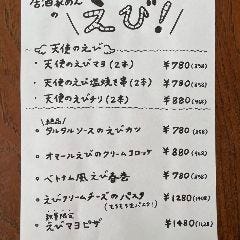 居酒家めん
の
えび!
天使のえび
・天使のえびマヨ(2本) ¥780(858)
・天使のえび塩焼き串(2本) ¥780(858)
・天使のえびチリ(2本) ¥880(968)
絶品
・タルタルソースのえびカツ ¥780(858)
・オマールえびのクリームコロッケ ¥880(968)
・ベトナム風えび春巻 ¥780(858)
・えびクリームチーズのパスタ ¥1280(1408)
(もちもち生パスタ!)
数量限定
・えびマヨピザ ¥1480(1628)